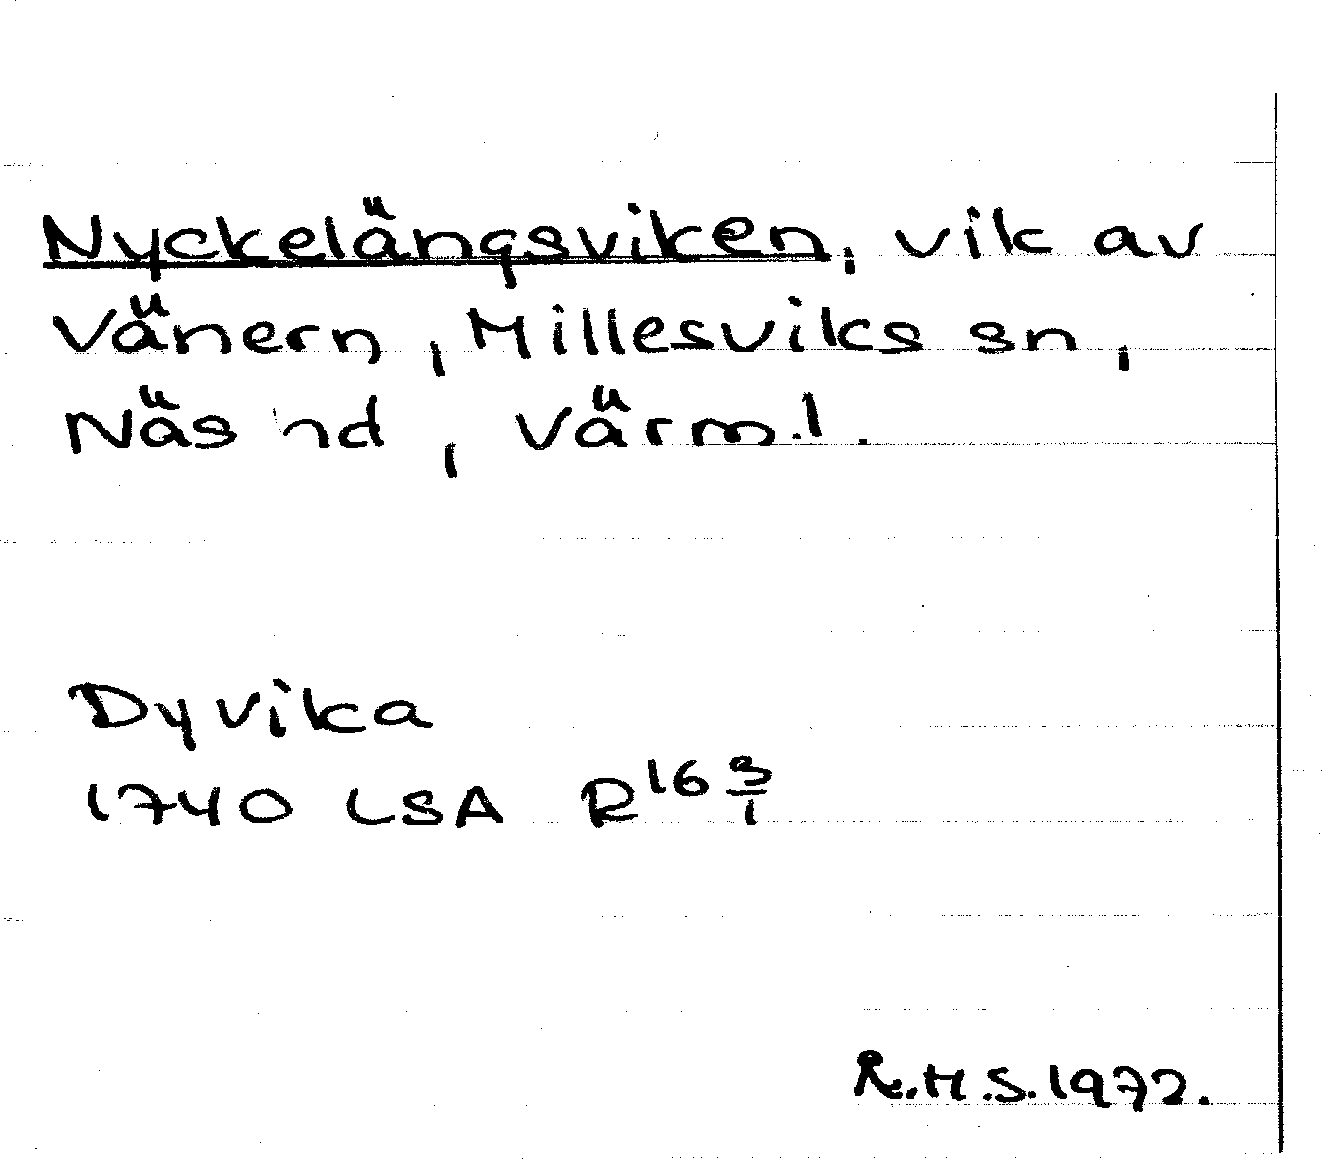 Nyckelängsviken, vik av
Vänern, Millesviks sn,
Näs hd, Värml.
Dyvika
1740 LSA R16 3/1
R.H.S. 1972.